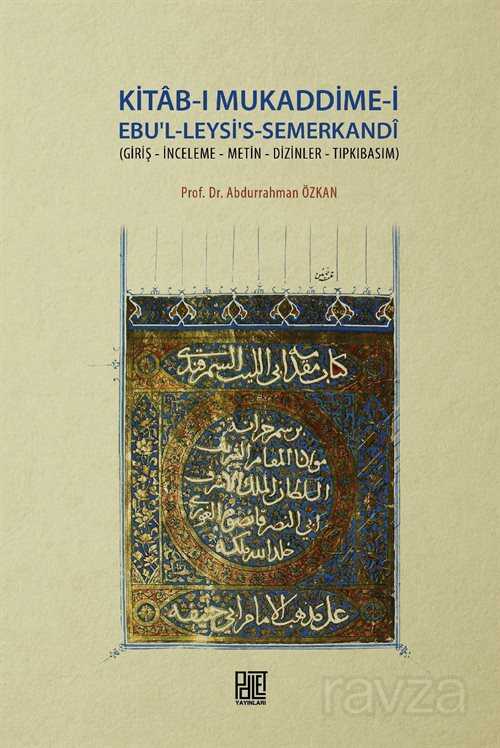 KİTÂB-I MUKADDİME-İ
EBU'L-LEYSİ'S-SEMERKANDÎ
(GİRİŞ - İNCELEME - METİN - DİZİNLER - TIPKIBASIM)
Prof. Dr. Abdurrahman ÖZKAN
كتاب مقدمة ابى الليث السمرقندى
برسم خزانة
مولانا المقام الشريف
السلطان الملك الاشرف
ابى النصر قانصوه الغورى
خلد الله ملكه
على مذهب الامام ابى حنيفه
PALET
YAYINLARI
ravza